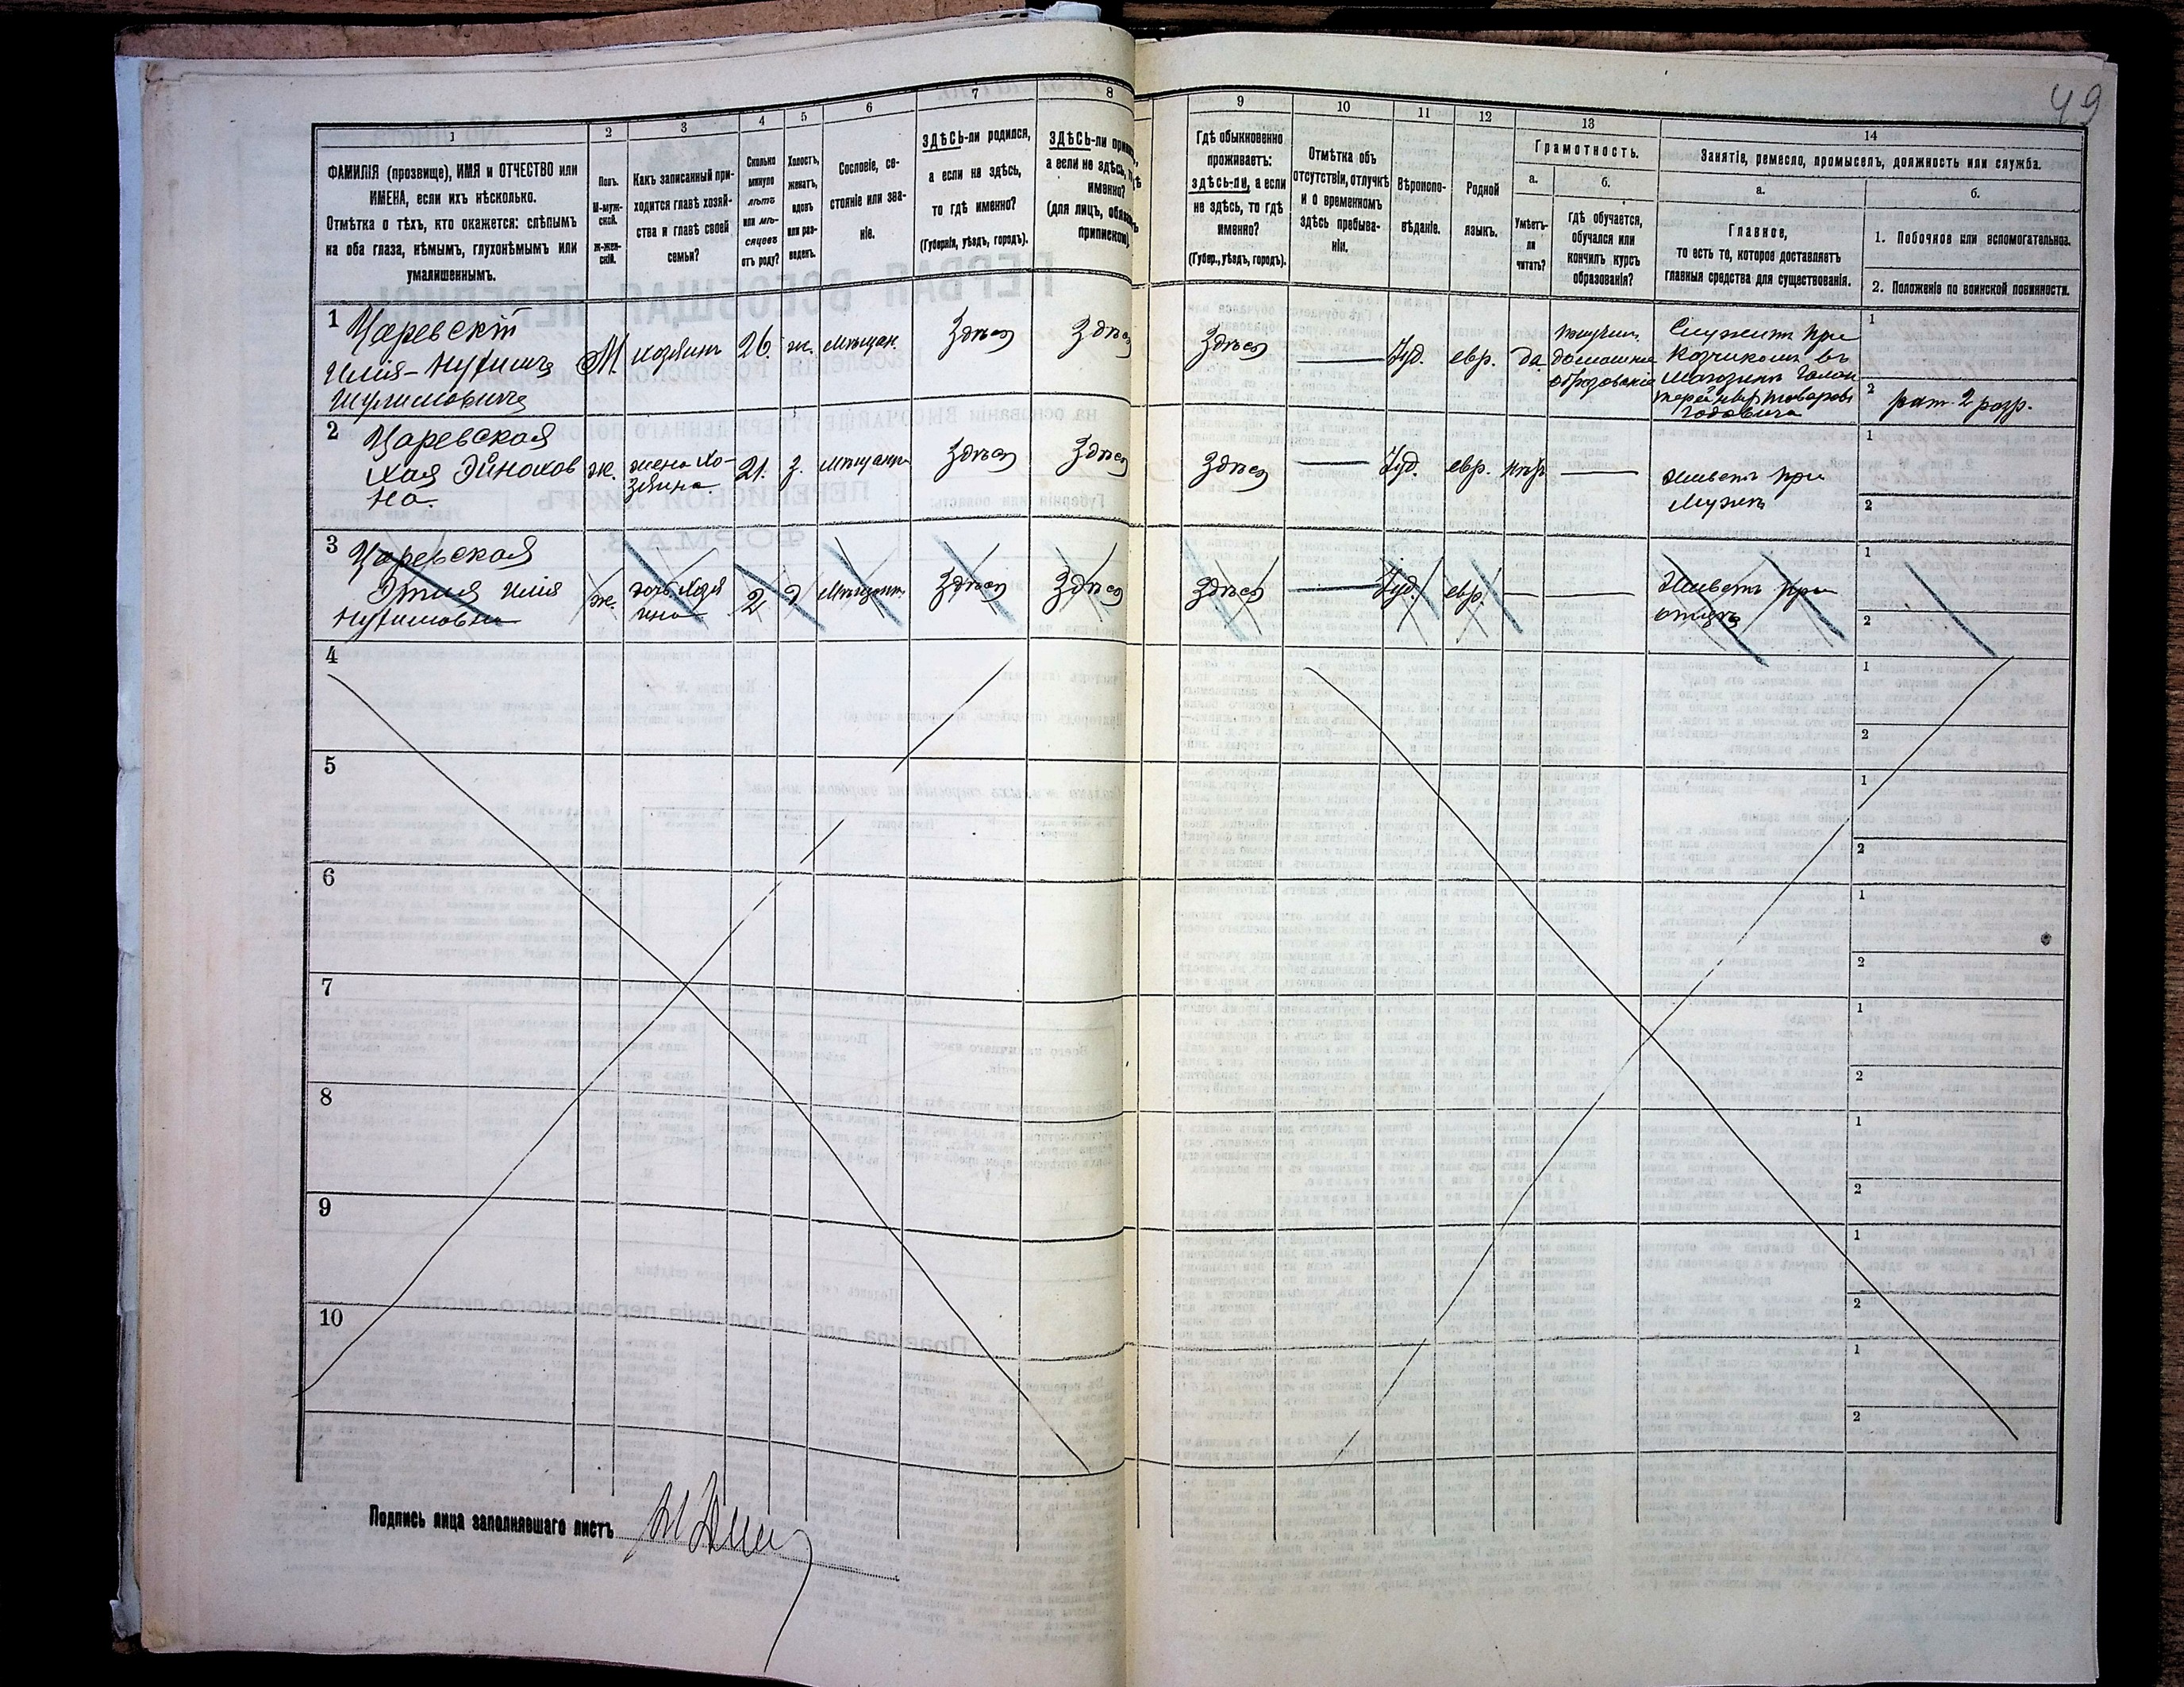 49
1
ФАМИЛІЯ (прозвище), ИМЯ и ОТЧЕСТВО или
ИМЕНА, если ихъ нѣсколько.
Отмѣтка о тѣхъ, кто окажется: слѣпымъ
на оба глаза, нѣмымъ, глухонѣмымъ или
умалишеннымъ.
2
Полъ.
М-муж-
ской.
ж-жен-
скій.
3
Какъ записанный при-
ходится главѣ хозяй-
ства и главѣ своей
семьи?
4
Сколько
минуло
лѣтъ
или мѣ-
сяцевъ
отъ роду?
5
Холостъ,
женатъ,
вдовъ
или раз-
веденъ.
6
Сословіе, со-
стояніе или зва-
ніе.
7
ЗДѢСЬ-ли родился,
а если не здѣсь,
то гдѣ именно?
(Губернія, уѣздъ, городъ).
8
ЗДѢСЬ-ли
а если не здѣсь,
именно?
(для лицъ,
припиской)
9
Гдѣ обыкновенно
проживаетъ:
здѣсь-ли, а если
не здѣсь, то гдѣ
именно?
(Губер., уѣздъ, городъ).
10
Отмѣтка объ
отсутствіи, отлучкѣ
и о временномъ
здѣсь пребыва-
ніи.
11
Вѣроиспо-
вѣданіе.
12
Родной
языкъ.
13
Грамотность.
а.
Умѣетъ-
ли
читать?
б.
гдѣ обучается,
обучался или
кончилъ курсъ
образованія?
14
Занятіе, ремесло, промыселъ, должность или служба.
а.
Главное,
то есть то, которое доставляетъ
главныя средства для существованія.
б.
1. Побочное или вспомогательное.
2. Положеніе по воинской повинности.
1 Царевскій
М. хозяинъ 26. ж. мѣщан. Здѣсь Здѣсь Здѣсь — Іуд. евр. да.
домашнее
образованіе
Служитъ при
въ
магазинѣ
товаровъ
1
2 рат. 2 разр.
2 Царевская
Хая
на.
ж. жена хо-
зяина. 21. з. мѣщанк. Здѣсь Здѣсь Здѣсь — Іуд. евр. нѣтъ —
живетъ при
мужѣ
1
2
3 Царевская
ж. дочь хозя
ина 2 д мѣщанк. Здѣсь Здѣсь Здѣсь — Іуд. евр. — —
живетъ при
отцѣ
1
2
4
1
2
5
1
2
6
1
2
7
1
2
8
1
2
9
1
2
10
1
2
Подпись лица заполнявшаго листъ